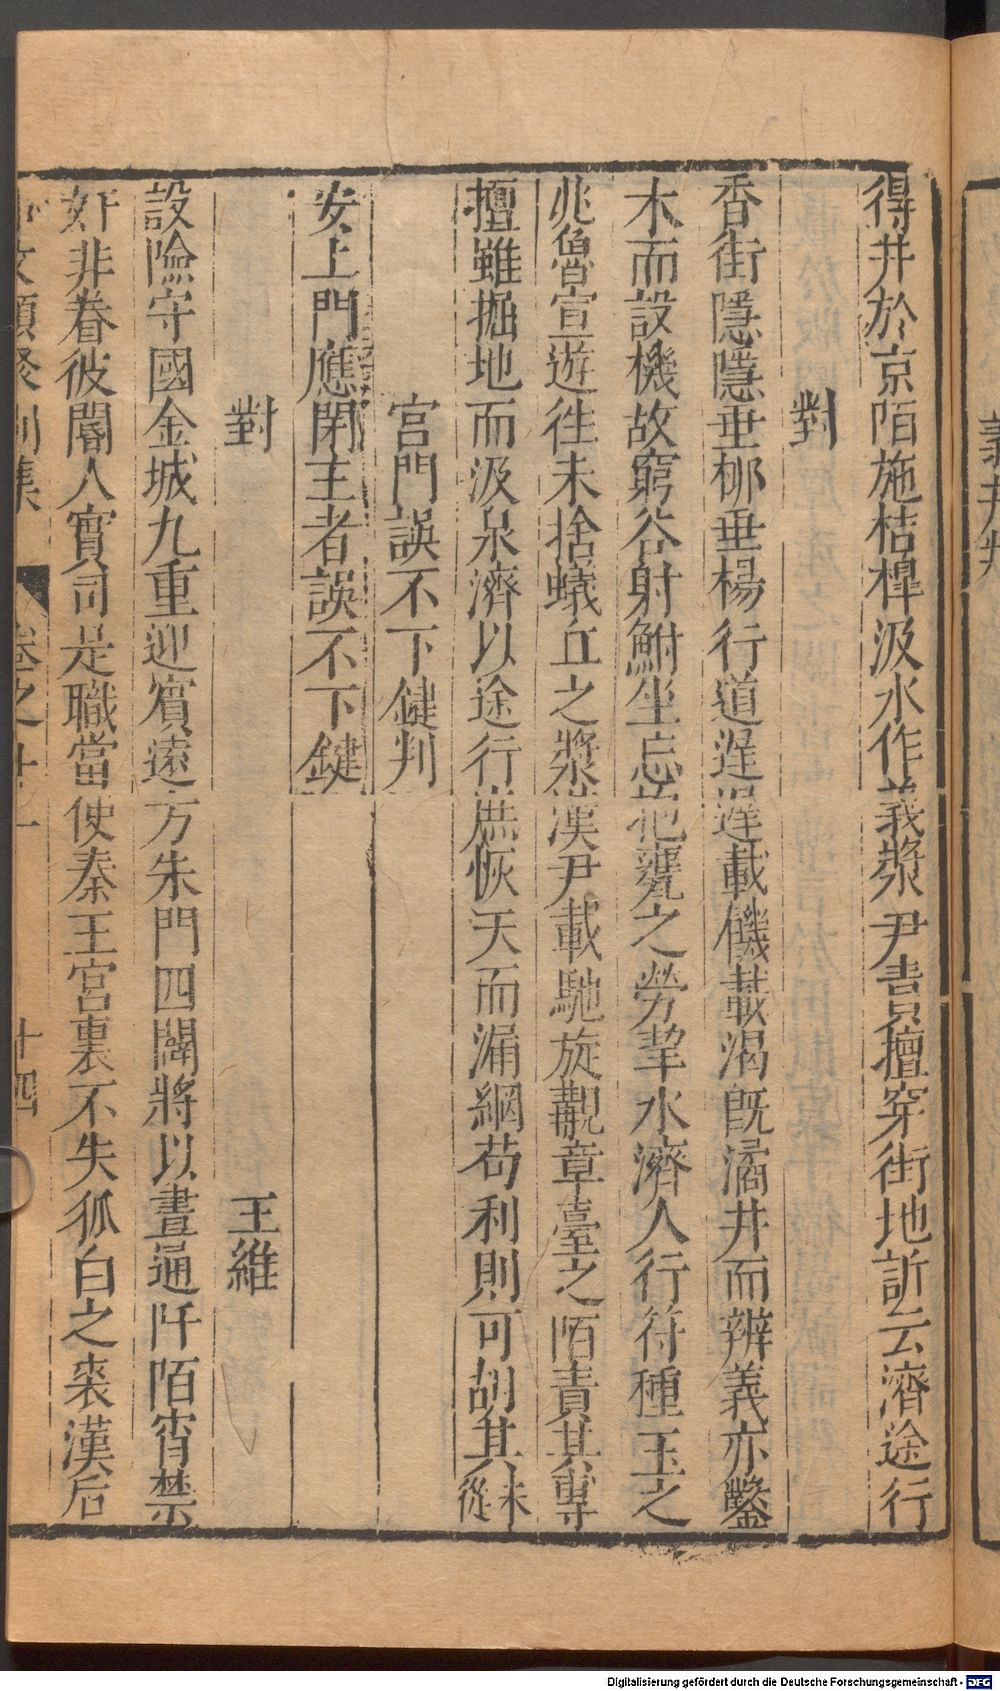 得井於京陌施桔槹汲水作義漿尹責擅穿街地訢云濟途行
對
香街隱隱垂桺垂楊行道遲遲載饑載渴旣潏井而辨義亦鑿
木而設機故窮谷射鮒坐忘抱甕之勞挈水濟人行符種玉之
兆魯宣遊徃未捨蟻丘之漿漢尹載馳旋覯章臺之陌責其專
擅雖掘地而汲泉濟以途行庶恢天而漏網苟利則可胡其未從
宮門誤不下鍵判
安上門應閉主者誤不下鍵
對 王維
設險守國金城九重迎賓遠方朱門四闢將以晝通阡陌宵禁
奸非眷彼閽人實司是職當使秦王宮裏不失狐白之裘漢后
卷之十
十四
義井判
Digitalisierung gefördert durch die Deutsche Forschungsgemeinschaft - DFG